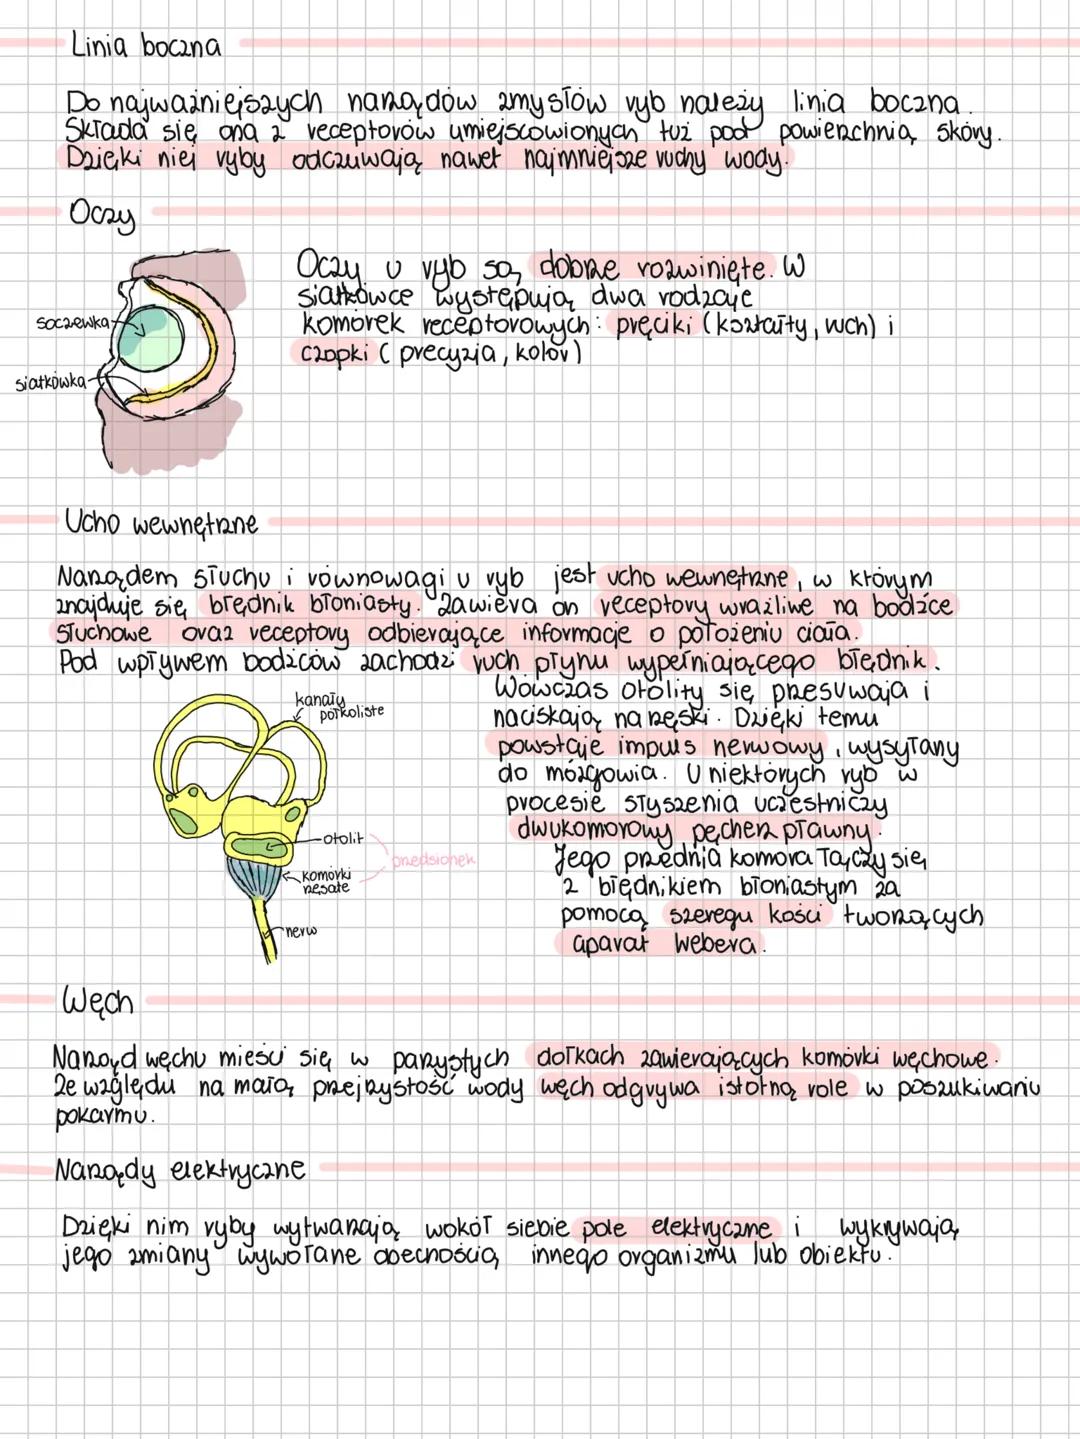 Linia boczna
Do najważniejszych narządów zmysłów ryb należy linia boczna.
Składa się ona z receptorów umiejscowionych tuż pod powierzchnią skóry.
Dzięki niej ryby odczuwają nawet najmniejsze ruchy wody.
Oczy
Oczy u ryb są dobrze rozwinięte. W
siatkówce występują dwa rodzaje
komórek receptorowych: pręciki (kształty, ruch) i
czopki (precyzja, kolor)
soczewka
siatkówka
Ucho wewnętrzne
Narządem słuchu i równowagi u ryb jest ucho wewnętrzne, w którym
znajduje się błędnik błoniasty. Zawiera on receptory wrażliwe na bodźce
słuchowe oraz receptory odbierające informacje o położeniu ciała.
Pod wpływem bodźców zachodzi ruch płynu wypełniającego błędnik.
Wówczas otolity się przesuwają i
naciskają na rzęski. Dzięki temu
powstaje impuls nerwowy, wysyłany
do mózgowia. U niektórych ryb w
procesie słyszenia uczestniczy
dwukomorowy pęcherz pławny.
Jego przednia komora łączy się
z błędnikiem błoniastym za
pomocą szeregu kości tworzących
aparat Webera.
kanały
półkoliste
otolit
przedsionek
komórki
rzęsate
nerw
Węch
Narząd węchu mieści się w parzystych dołkach zawierających komórki węchowe.
Ze względu na małą przejrzystość wody węch odgrywa istotną role w poszukiwaniu
pokarmu.
Narządy elektryczne
Dzięki nim ryby wytwarzają wokół siebie pole elektryczne i wykrywają
jego zmiany wywołane obecnością innego organizmu lub obiektu.